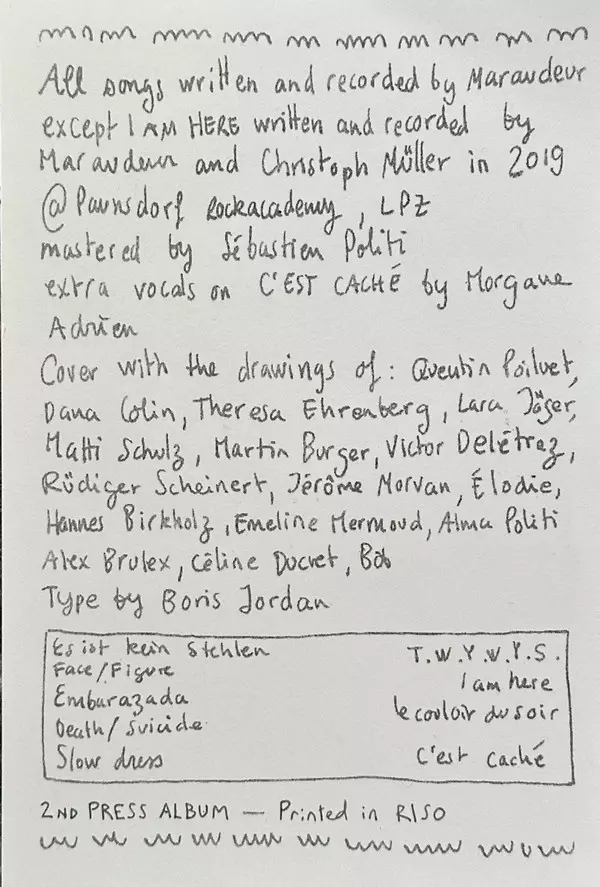 All songs written and recorded by Maraudeur
except I AM HERE written and recorded by
Maraudeur and Christoph Müller in 2019
@ Paunsdorf Rockacademy, LPZ
mastered by Sébastien Politi
extra vocals on C'EST CACHÉ by Morgane
Adrien
Cover with the drawings of: Quentin Poilvet,
Dana Colin, Theresa Ehrenberg, Lara Jäger,
Matti Schulz, Martin Burger, Victor Delétraz,
Rüdiger Scheinert, Jérôme Morvan, Élodie,
Hannes Birkholz, Emeline Mermoud, Alma Politi
Alex Brulex, Céline Ducret, Bob
Type by Boris Jordan
Es ist kein Stehlen
Face/Figure
Embarazada
Death/Suicide
Slow dress
T.W.Y.W.Y.S.
I am here
le couloir du soir
C'est caché
2ND PRESS ALBUM — Printed in RISO